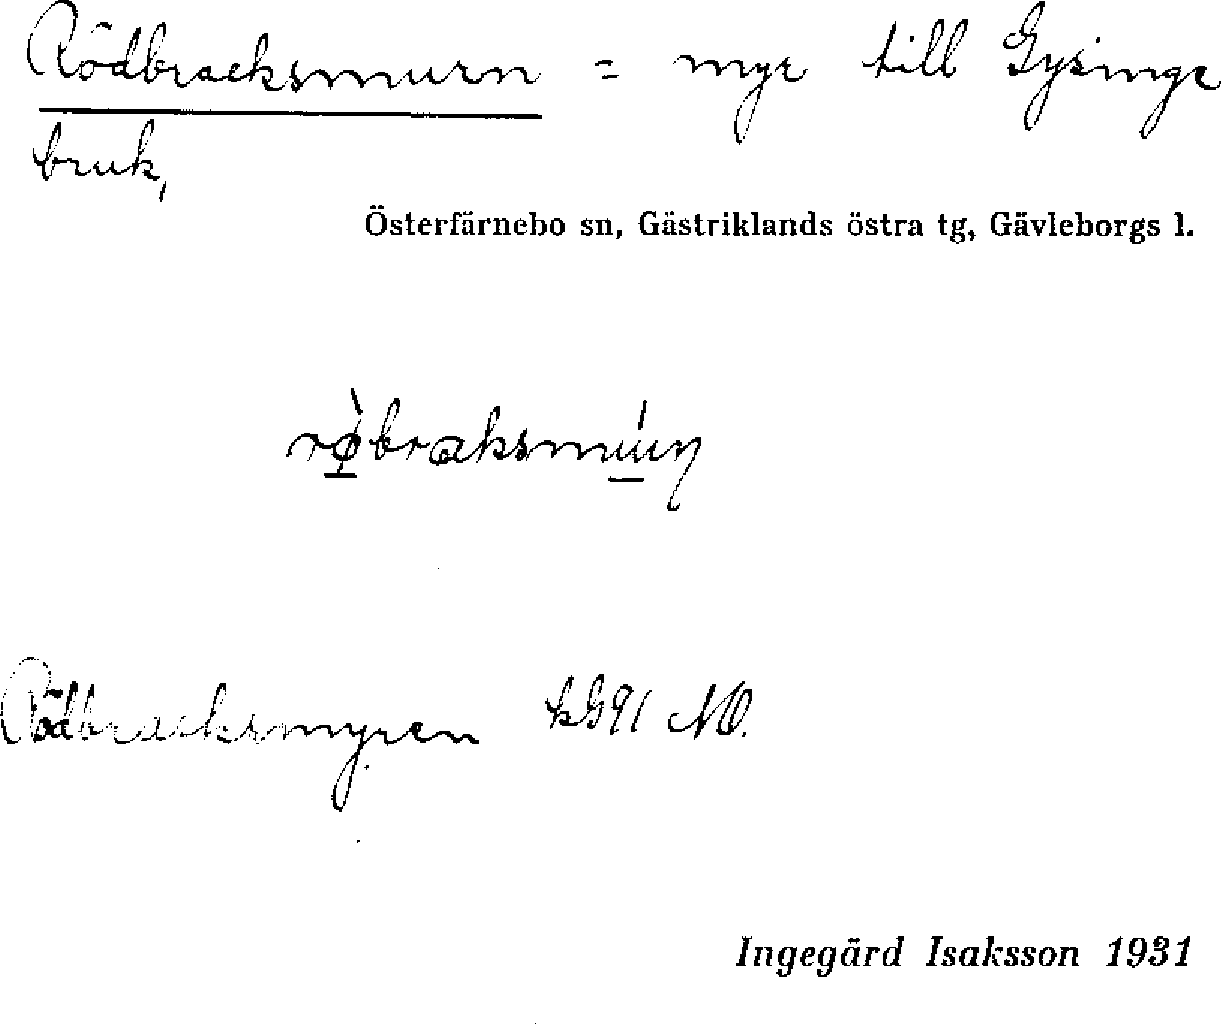 Rödbracksmurn = myr till Gysinge
bruk,
Österfärnebo sn, Gästriklands östra tg, Gävleborgs l.
Rödbracksmyren kG91 NO.
Ingegärd Isaksson 1931